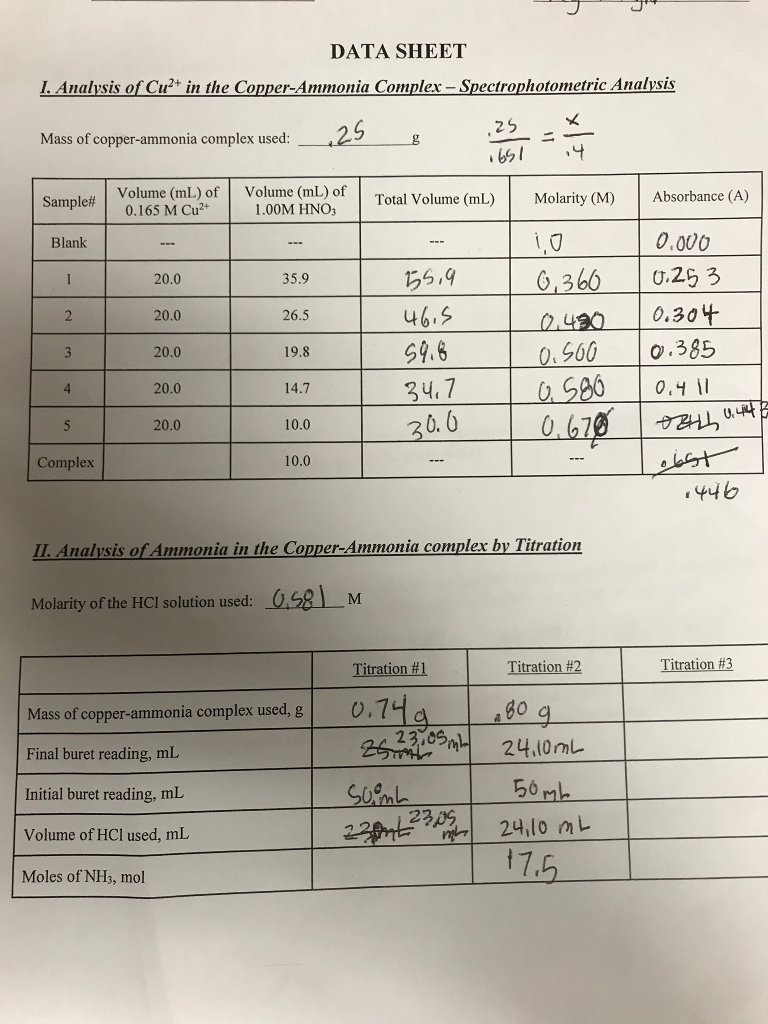 DATA SHEET
I. Analysis of Cu²⁺ in the Copper-Ammonia Complex – Spectrophotometric Analysis
Mass of copper-ammonia complex used: .25 g .25/.651 = x/.4
Sample# Volume (mL) of 0.165 M Cu²⁺ Volume (mL) of 1.00M HNO₃ Total Volume (mL) Molarity (M) Absorbance (A)
Blank --- --- --- 1.0 0.000
1 20.0 35.9 55.9 0.360 0.253
2 20.0 26.5 46.5 0.304
3 20.0 19.8 0.500 0.385
4 20.0 14.7 34.7 0.580 0.411
5 20.0 10.0 30.0 0.67 0.443
Complex 10.0 --- --- .651
.446
II. Analysis of Ammonia in the Copper-Ammonia complex by Titration
Molarity of the HCl solution used: 0.581 M
Titration #1 Titration #2 Titration #3
Mass of copper-ammonia complex used, g 0.74 g .80 g
Final buret reading, mL 23.05 mL 24.10 mL
Initial buret reading, mL 50.0 mL 50 mL
Volume of HCl used, mL 23.05 mL 24.10 mL
Moles of NH₃, mol 17.5